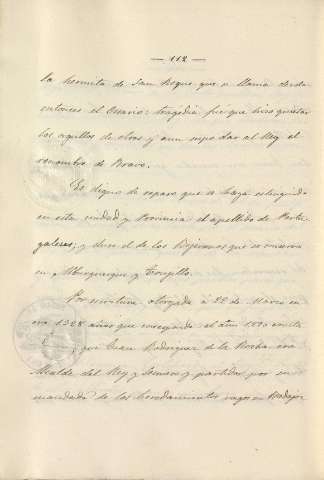 — 112 —
la hermita de San Roque que se llama desde
entonces el Osario: tragedia que hizo quietar
los orgullos de otros y aun supo dar al Rey el
renombre de Bravo.
Es digno de reparo que se haya estinguido
en esta ciudad y Provincia el apellido de Portu-
galeses; y dure el de los Bejaranos que se conserva
en Alburquerque y Trugillo.
Por escritura otorgada á 22 de Marzo en
era 1328 años que corresponde al año 1290 consta
que Juan Rodriguez de la Rocha era
Alcalde del Rey y Sesmero y partidor por su
mandado de los heredamientos vagos en Badajoz